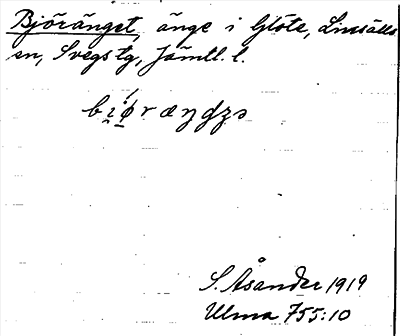 Björänget, änge i Glöte, Linsälls
sn, Svegs tg, Jämtl. l.
S. Åsander 1919
Ulma 755:10